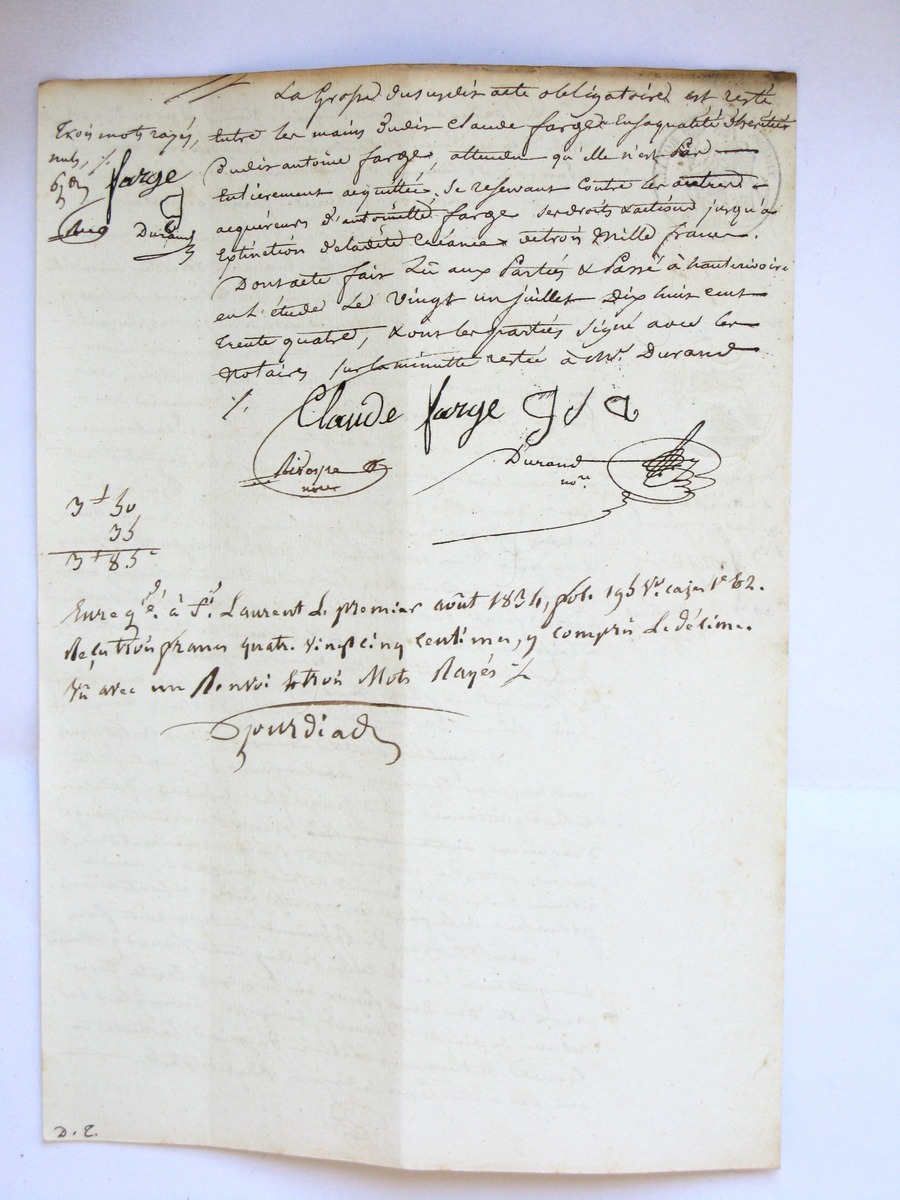 La Grosse dususdit acte obligatoire est resté
Entre les mains dudit Claude farge Ensaqualité d'heritier
Dudit antoine farge, attendu qu'elle n'est Pas
Entièrement acquittée, Se reservant Contre les autres
acquéreurs d'antoine farge ses droits & actions jusqu'à
Extinction deladite Créance detrois Mille francs.
Dont acte fait Lû aux Parties & Passé à hauterivoire
en l'étude Le Vingt un juillet Dix huit cent
trente quatre, & ont les parties Signé avec les
notaires sur la minutte restée à Mr. Durand
Trois mots rayés,
nuls, ./.
farge
Durand
./. Claude farge
Durand
nore
3f 50
35
3f 85c
Enregté. à St. Laurent Le premier août 1834, fol. 195 Vo. cases 1e & 2.
Reçu trois francs quatre vingt cinq centimes, y compris Le décime.
Vû avec un Renvoi & trois Mots Rayés ./.
D. E.